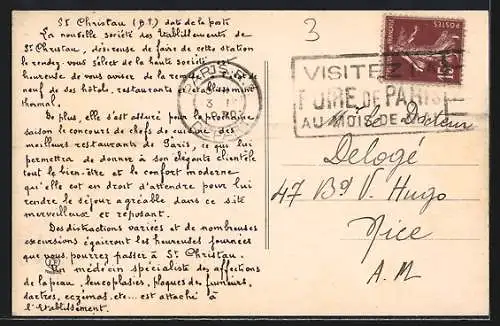 St Christau (B.P.) date de la poste
La nouvelle société des Etablissements de
St Christau, désireuse de faire de cette station
le rendez-vous sélect de la haute société
heureuse de vous aviser de la remise et
neuf de ses hôtels, restaurants et établissement
thermal.
De plus, elle s'est assuré pour la prochaine
saison le concours de chefs de cuisine des
meilleurs restaurants de Paris, ce qui lui
permettra de donner à son élégante clientèle
tout le bien-être et le confort moderne
qu'elle est en droit d'attendre pour lui
rendre le séjour agréable dans ce site
merveilleux et reposant.
Des distractions variées et de nombreuses
excursions égaieront les heureuses journées
que vous pourrez passer à St Christau.
Un médecin spécialiste des affections
de la peau, leucoplasies, plaques des fumeurs,
dartres, eczémas, etc... est attaché à
l'Etablissement.
3
PARIS
3
VISITEZ
FOIRE DE PARIS
AU MOIS DE
Le Docteur
Delogé
47 Bd V. Hugo
Nice
A. M